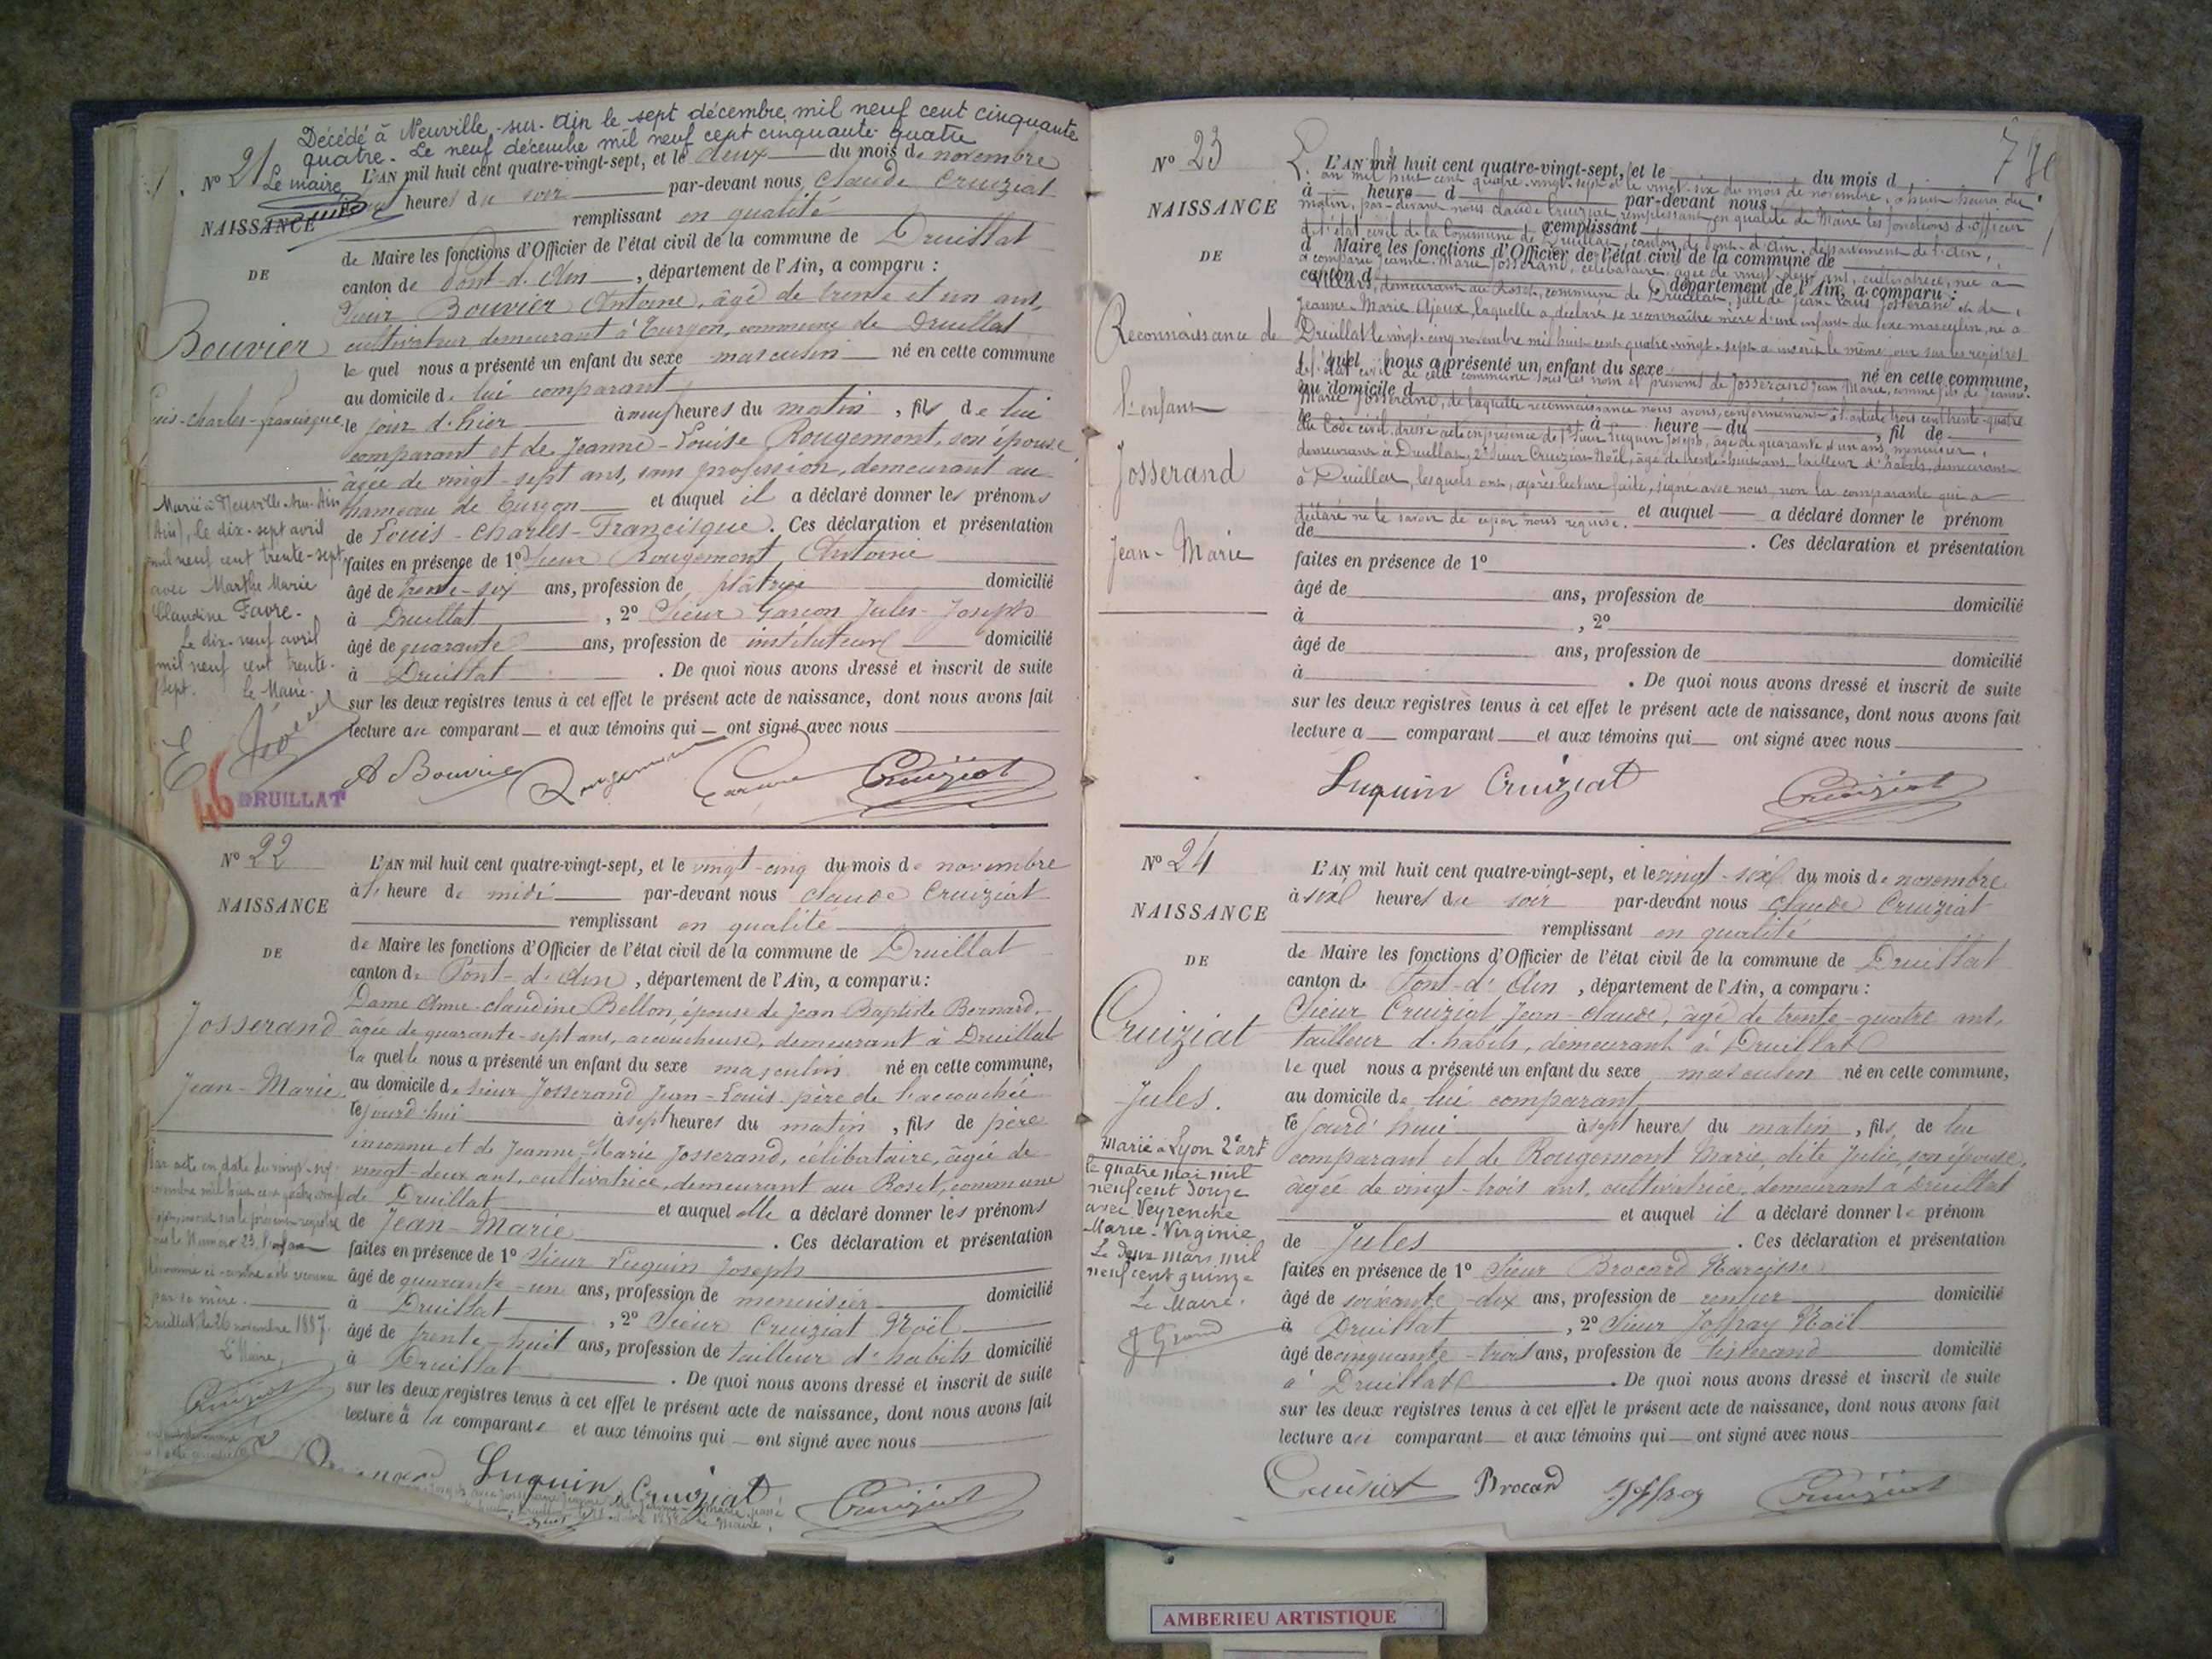 Décédé à Neuville-sur-Ain le sept décembre mil neuf cent cinquante
quatre. Le neuf décembre mil neuf cent cinquante-quatre
Le maire
N° 21
NAISSANCE
DE
Bouvier
Louis-Charles-Francisque
L'AN mil huit cent quatre-vingt-sept, et le deux du mois de novembre
heures du soir par-devant nous Claude Cruiziat
remplissant en qualité
de Maire les fonctions d'Officier de l'état civil de la commune de Druillat
canton de Pont-d'Ain, département de l'Ain, a comparu :
Sieur Bouvier Antoine, âgé de trente et un ans,
cultivateur demeurant à Turgon, commune de Druillat
le quel nous a présenté un enfant du sexe masculin né en cette commune
au domicile de lui comparant
le jour d'hier à neuf heures du matin, fils de lui
comparant et de Jeanne-Louise Rougemont, son épouse
âgée de vingt-sept ans, sans profession, demeurant au
hameau de Turgon et auquel il a déclaré donner les prénoms
de Louis-Charles-Francisque. Ces déclaration et présentation
faites en présence de 1° Sieur Rougemont Antoine
âgé de trente-six ans, profession de plâtrier domicilié
à Druillat, 2° Sieur Garcon Jules-Joseph
âgé de quarante ans, profession de instituteur domicilié
à Druillat. De quoi nous avons dressé et inscrit de suite
sur les deux registres tenus à cet effet le présent acte de naissance, dont nous avons fait
lecture au comparant et aux témoins qui ont signé avec nous
Marié à Neuville-sur-Ain
(Ain), le dix-sept avril
mil neuf cent trente-sept
avec Marthe Marie
Claudine Favre.
Le dix-neuf avril
mil neuf cent trente-
sept. le Maire.
A Bouvier Rougemont Cruiziat
46 DRUILLAT
N° 22
NAISSANCE
DE
Josserand
Jean-Marie
L'AN mil huit cent quatre-vingt-sept, et le vingt-cinq du mois de novembre
à heure de midi par-devant nous Claude Cruiziat
remplissant en qualité
de Maire les fonctions d'Officier de l'état civil de la commune de Druillat
canton de Pont-d'Ain, département de l'Ain, a comparu :
Dame Anne-Claudine Bellon, épouse de Jean Baptiste Bernard,
âgée de quarante-sept ans, accoucheuse, demeurant à Druillat
la quelle nous a présenté un enfant du sexe masculin né en cette commune,
au domicile de Sieur Josserand Jean-Louis père de l'accouchée
le jourd'hui à sept heures du matin, fils de père
inconnu et de Jeanne-Marie Josserand, célibataire, âgée de
vingt-deux ans, cultivatrice, demeurant au Roset, commune
de Druillat et auquel elle a déclaré donner les prénoms
de Jean-Marie. Ces déclaration et présentation
faites en présence de 1° Sieur Luquin Joseph
âgé de quarante-un ans, profession de menuisier domicilié
à Druillat, 2° Sieur Cruiziat Noël
âgé de trente-huit ans, profession de tailleur d'habits domicilié
à Druillat. De quoi nous avons dressé et inscrit de suite
sur les deux registres tenus à cet effet le présent acte de naissance, dont nous avons fait
lecture à la comparante et aux témoins qui ont signé avec nous
Par acte en date du vingt-six
novembre mil huit cent quatre-vingt
sept, inscrit sur le présent registre
sous le Numero 23, l'enfant
dénommé ci-contre a été reconnu
par sa mère.
Druillat le 26 novembre 1887.
Le Maire,
Cruiziat
Luquin Cruiziat Cruiziat
N° 23
NAISSANCE
DE
Reconnaissance de
l'enfant
Josserand
Jean-Marie
L'AN mil huit cent quatre-vingt-sept, et le du mois d
L'an mil huit cent quatre-vingt-sept et le vingt-six du mois de novembre, à huit heures du
à heure d par-devant nous
matin, par-devant nous Claude Cruiziat remplissant en qualité de Maire les fonctions d'officier
remplissant
de l'état civil de la Commune de Druillat, canton de Pont-d'Ain, département de l'Ain,
d Maire les fonctions d'Officier de l'état civil de la commune de
a comparu Jeanne-Marie Josserand, célibataire, âgée de vingt-deux ans, cultivatrice, née à
canton d département de l'Ain, a comparu :
Villars, demeurant au Roset, commune de Druillat, fille de Jean-Louis Josserand et de
Jeanne-Marie Ajoux, laquelle a déclaré se reconnaître mère d'un enfant du sexe masculin, né à
Druillat le vingt-cinq novembre mil huit cent quatre-vingt-sept et inscrit le même jour sur les registres
l quel nous a présenté un enfant du sexe né en cette commune,
de l'état civil de cette commune sous les nom et prénoms de Josserand Jean Marie, comme fils de Jeanne-
au domicile d
Marie Josserand, de laquelle reconnaissance nous avons, conformément à l'article trois cent trente-quatre
le à heure du , fil de
du Code civil dressé acte en présence de 1° Sieur Luquin Joseph, âgé de quarante et un ans, menuisier,
demeurant à Druillat, 2° Sieur Cruiziat Noël, âgé de trente-huit ans, tailleur d'habits, demeurant
à Druillat, lesquels ont, après lecture faite, signé avec nous, non la comparante qui a
déclaré ne le savoir de ce par nous requise. et auquel a déclaré donner le prénom
de . Ces déclaration et présentation
faites en présence de 1°
âgé de ans, profession de domicilié
à , 2°
âgé de ans, profession de domicilié
à . De quoi nous avons dressé et inscrit de suite
sur les deux registres tenus à cet effet le présent acte de naissance, dont nous avons fait
lecture a comparant et aux témoins qui ont signé avec nous
Luquin Cruiziat Cruiziat
N° 24
NAISSANCE
DE
Cruiziat
Jules.
L'AN mil huit cent quatre-vingt-sept, et le vingt-six du mois de novembre
à six heures du soir par-devant nous Claude Cruiziat
remplissant en qualité
de Maire les fonctions d'Officier de l'état civil de la commune de Druillat
canton de Pont-d'Ain, département de l'Ain, a comparu :
Sieur Cruiziat Jean-Claude, âgé de trente-quatre ans,
tailleur d'habits, demeurant à Druillat
le quel nous a présenté un enfant du sexe masculin né en cette commune,
au domicile de lui comparant
le jourd'hui à sept heures du matin, fils de lui
comparant et de Rougemont Marie, dite Julie, son épouse,
âgée de vingt-trois ans, cultivatrice, demeurant à Druillat
et auquel il a déclaré donner le prénom
de Jules. Ces déclaration et présentation
faites en présence de 1° Sieur Brocard Narcisse
âgé de soixante-dix ans, profession de rentier domicilié
à Druillat, 2° Sieur Joffray Noël
âgé de cinquante-trois ans, profession de tisserand domicilié
à Druillat. De quoi nous avons dressé et inscrit de suite
sur les deux registres tenus à cet effet le présent acte de naissance, dont nous avons fait
lecture au comparant et aux témoins qui ont signé avec nous
Marié à Lyon 2e art
le quatre mai mil
neuf cent douze
avec Veyrenche
Marie-Virginie
Le deux mars mil
neuf cent quinze
Le Maire.
J Grand
Cruiziat Brocard Joffray Cruiziat
AMBERIEU ARTISTIQUE